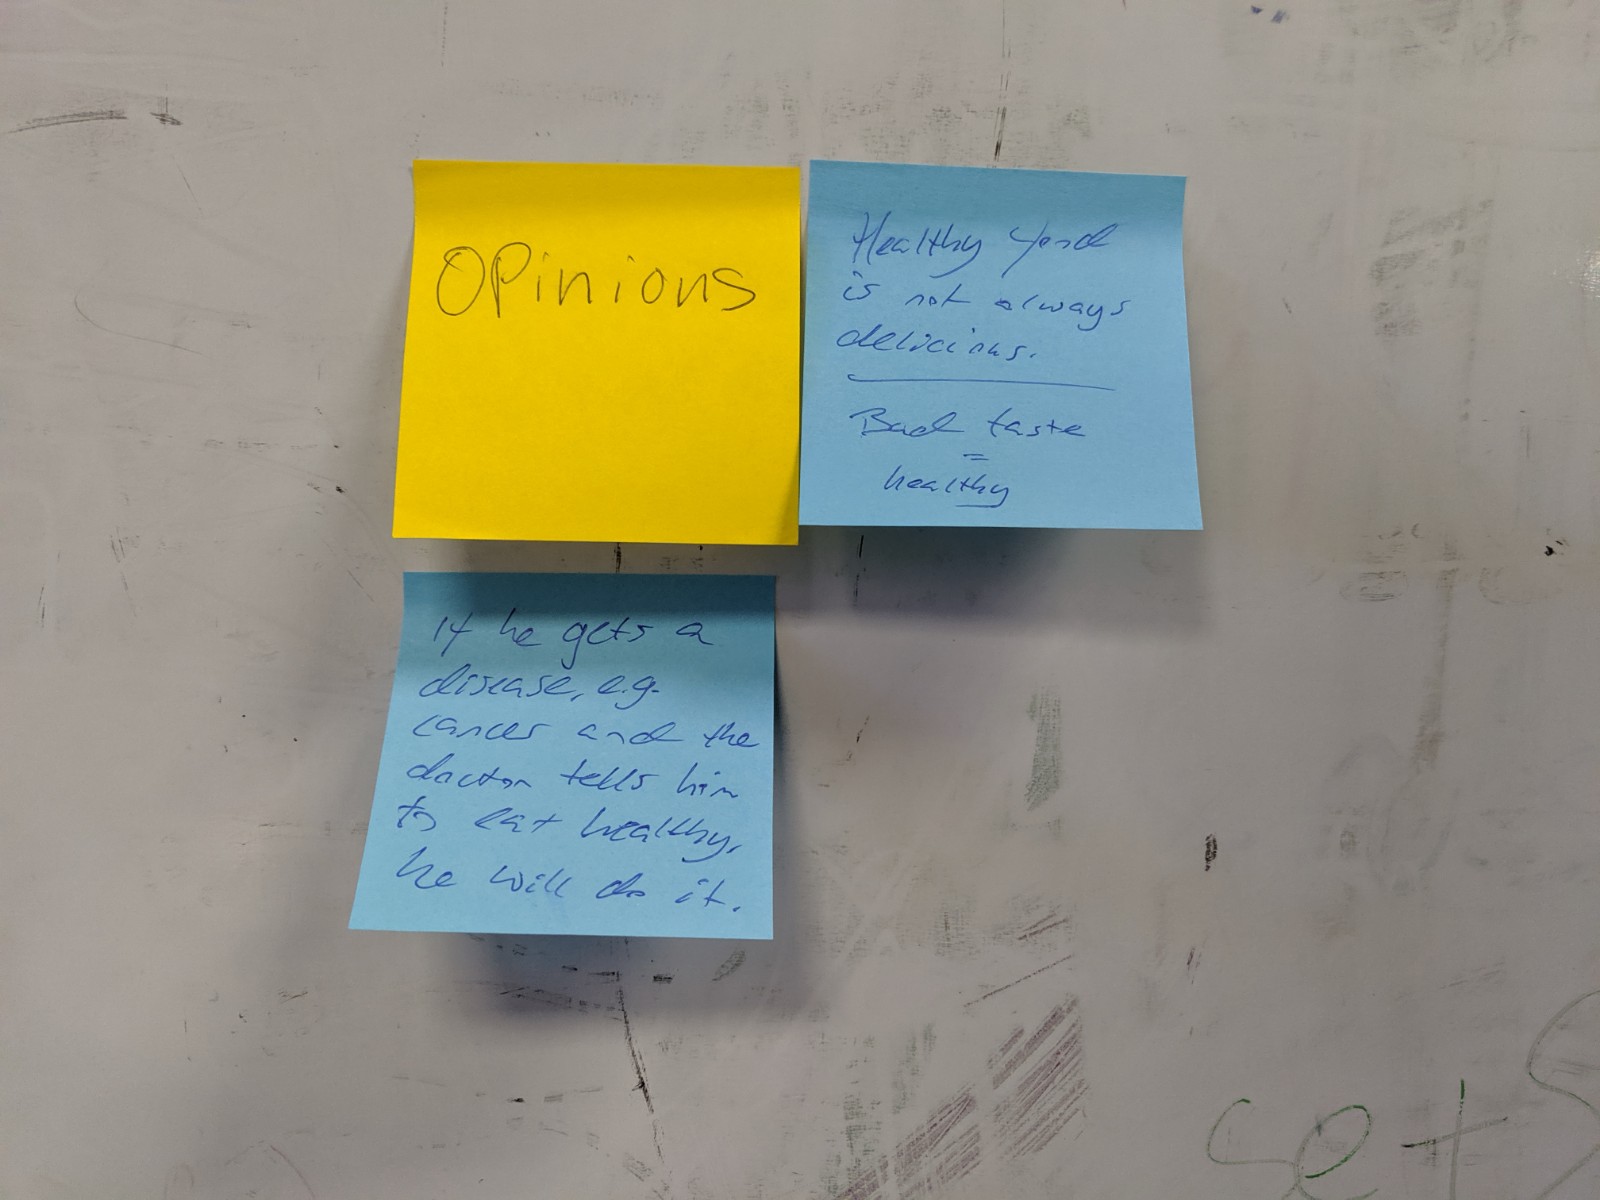 Opinions
Healthy food
is not always
delicious.
Bad taste
=
healthy
If he gets a
disease, e.g.
cancer and the
doctor tells him
to eat healthy,
he will do it.
set S